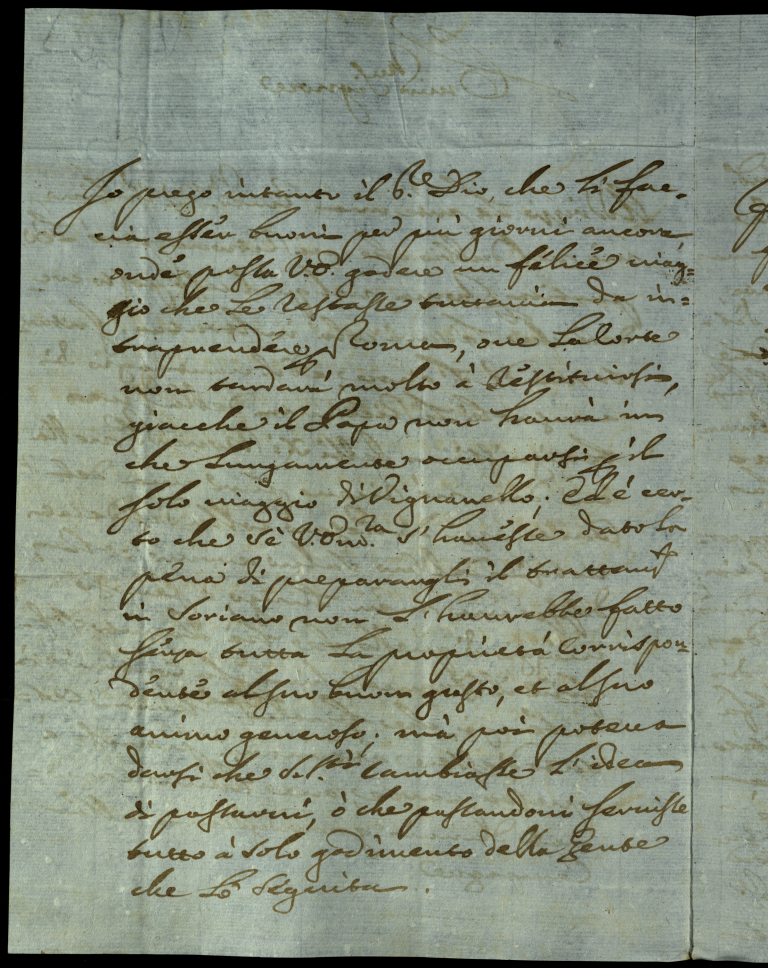 Io prego intanto il S.re Dio, che li fac-
cia esser buoni per più giorni ancora
onde possa V.E. godere un felice viag-
gio che Le restasse tuttavia da in-
traprendere Roma, ove La Corte
non tardarà molto à restituirsi,
giacche il Papa non haurà in
che Lungamente occuparsi il
solo viaggio di Vignanello. Ed è cer-
to che sè s'havesse dato la
pena di preparargli il trattam.to
in Soriano non L'haurebbe fatto
senza tutta La proprietà Corrispon-
dente al suo buon gusto, et al suo
animo generoso; mà poi poteva
darsi che S.S.tà Cambiasse L'idea
di passarvi, ò che passandovi servisse
tutto à solo godimento della Gente
che Lo seguita.